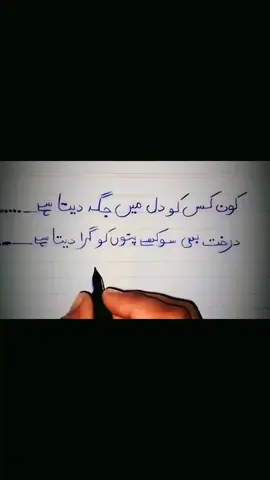 کون کس کو دل میں جگہ دیتا ہے......
درخت بھی سوکھے پتوں کو گرا دیتا ہے....